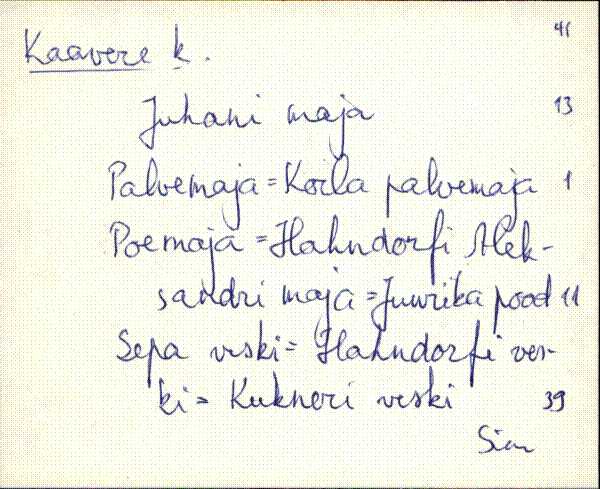 41
Kaavere k.
Juhani maja 13
Palvemaja = Korla palvemaja 1
Poemaja = Hahndorfi Alek-
sandri maja = Juurika pood 11
Sepa veski = Hahndorfi ves-
ki = Kukneri veski 39